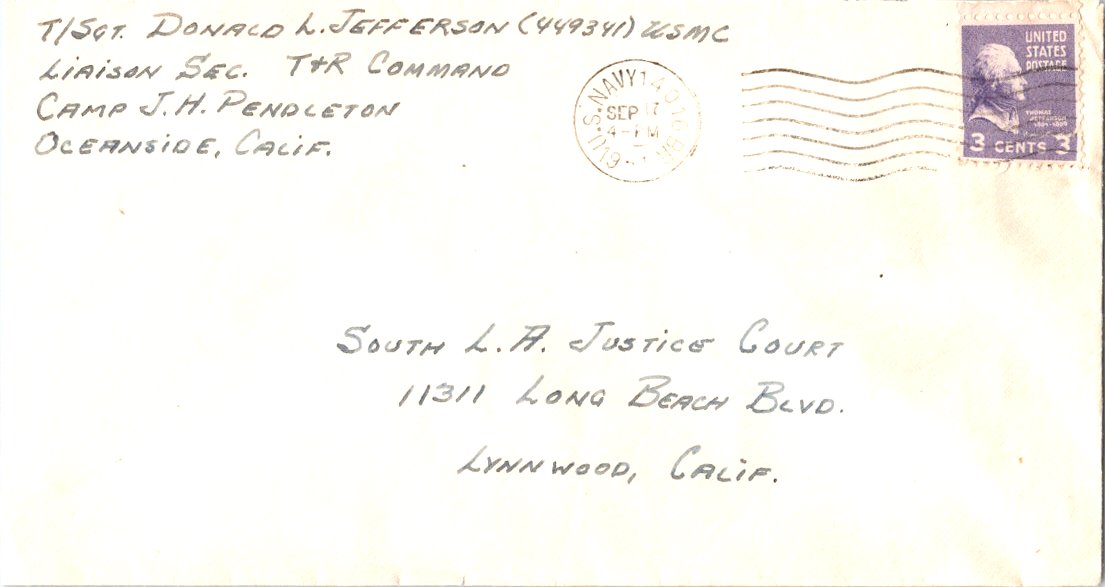 T/SGT. DONALD L. JEFFERSON (449341) USMC
LIAISON SEC. T+R COMMAND
CAMP J.H. PENDLETON
OCEANSIDE, CALIF.
U.S. NAVY 14016 BR.
SEP 17
4-PM
UNITED
STATES
POSTAGE
THOMAS
JEFFERSON
3 CENTS 3
SOUTH L.A. JUSTICE COURT
11311 LONG BEACH BLVD.
LYNNWOOD, CALIF.